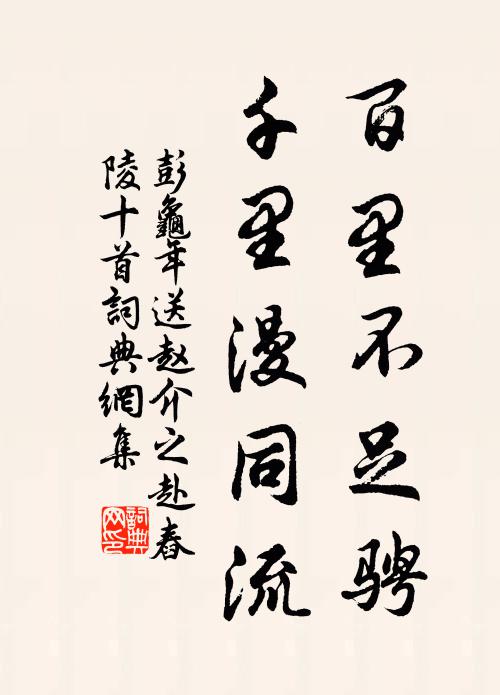 百里不足骋
千里漫同流
彭龜年送赵介之赴舂
陵十首詞典網集
詞典
网印